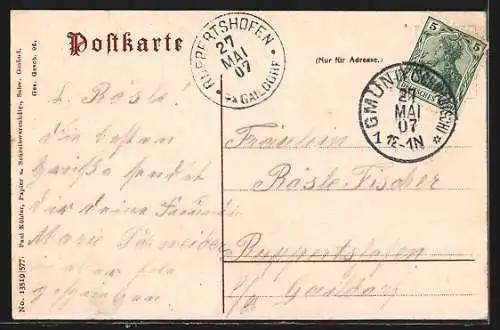 Postkarte
RUPPERTSHOFEN
27
MAI
07
GAILDORF
(Nur für Adresse.)
5 5
DEUTSCHES
GMÜND
27
MAI
07
1 12-1N
L. Rösle!
Die besten
Grüße sendet
dir deine Freundin
Marie Schneider
Fräulein
Rösle Fischer
Ruppertshofen
Gaildorf
Ges. Gesch. 06.
Paul Köhler, Papier u. Schreibwarenhdlg., Schw. Gmünd.
No. 13519|577.